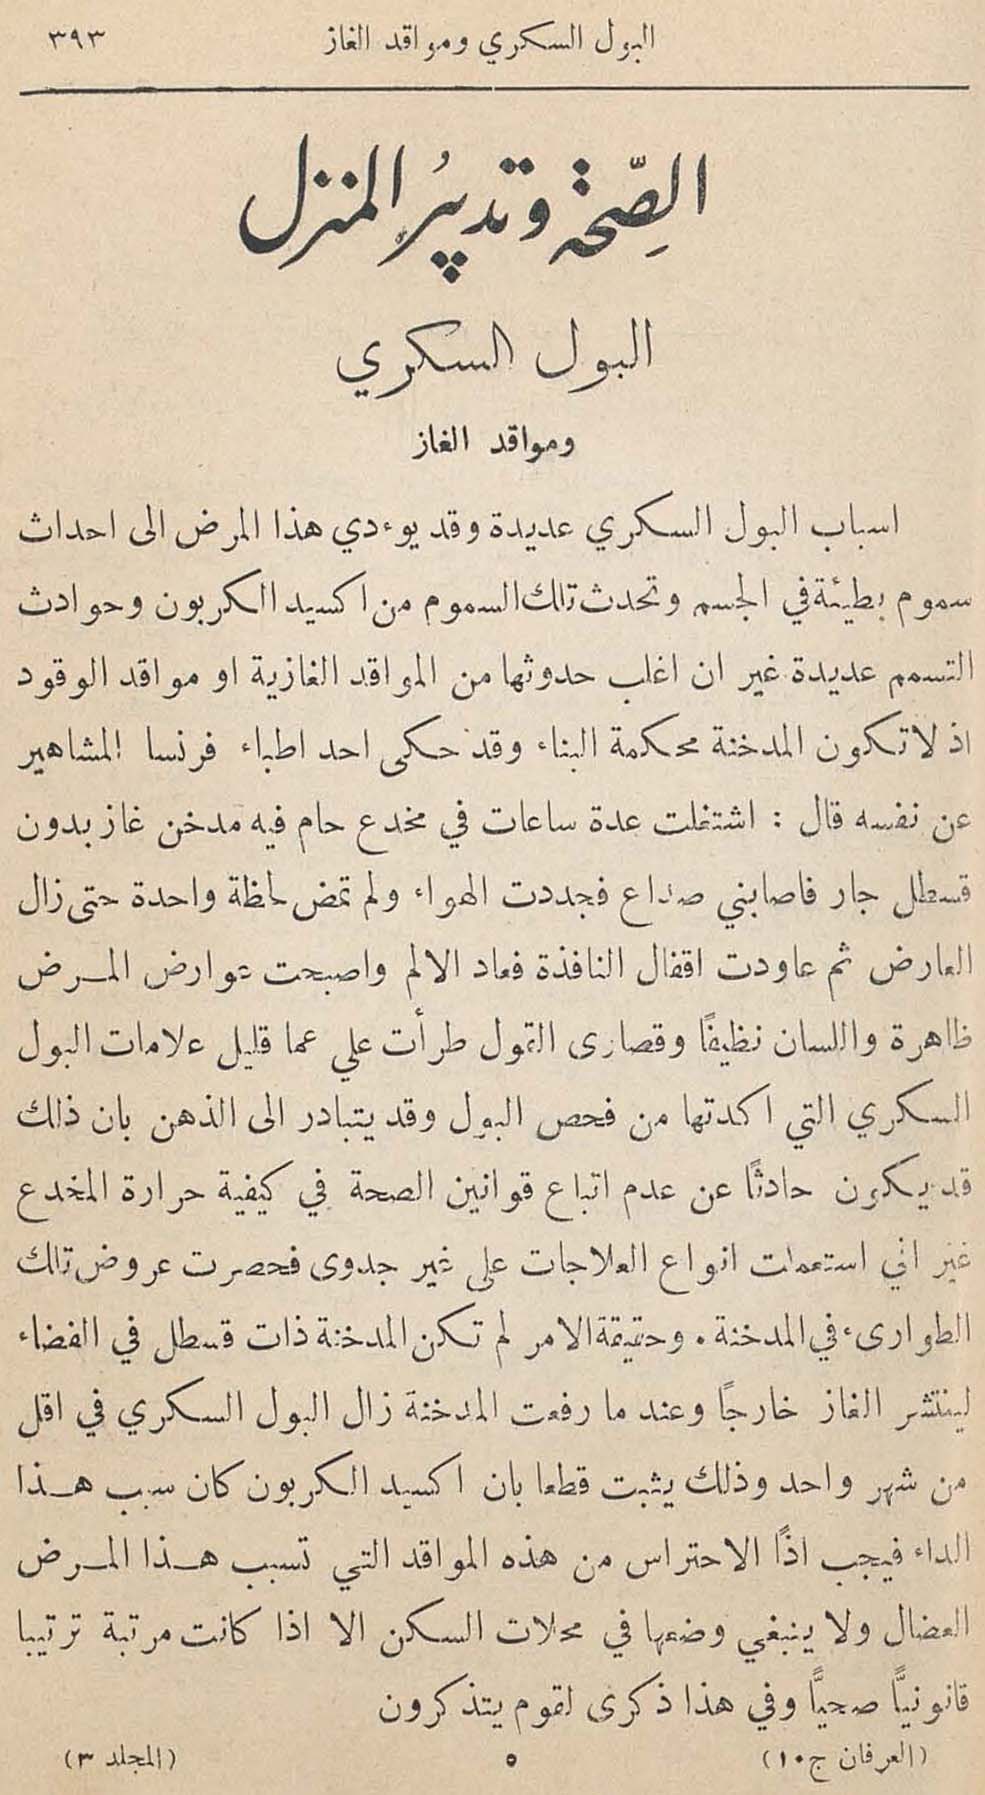 البول السكري ومواقد الغاز ٣٩٣
الصِّحة وتدبيرُ المنزل
البول السكري
ومواقد الغاز
اسباب البول السكري عديدة وقد يوءدي هذا المرض الى احداث
سموم بطيئة في الجسم وتحدث تلك السموم من اكسيد الكربون وحوادث
التسمم عديدة غير ان اغلب حدوثها من المواقد الغازية او مواقد الوقود
اذ لا تكون المدخنة محكمة البناء وقد حكى احد اطباء فرنسا المشاهير
عن نفسه قال : اشتغلت عدة ساعات في مخدع حام فيه مدخن غاز بدون
قسطل جار فاصابني صداع فجددت الهواء ولم تمض لحظة واحدة حتى زال
العارض ثم عاودت اقفال النافذة فعاد الالم واصبحت عوارض المرض
ظاهرة واللسان نظيفًا وقصارى القول طرأت علي عما قليل علامات البول
السكري التي اكدتها من فحص البول وقد يتبادر الى الذهن بان ذلك
قد يكون حادثًا عن عدم اتباع قوانين الصحة في كيفية حرارة المخدع
غير اني استعملت انواع العلاجات على غير جدوى فحصرت عروض تلك
الطوارىء في المدخنة . وحقيقة الامر لم تكن المدخنة ذات قسطل في الفضاء
لينتشر الغاز خارجًا وعند ما رفعت المدخنة زال البول السكري في اقل
من شهر واحد وذلك يثبت قطعا بان اكسيد الكربون كان سبب هذا
الداء فيجب اذًا الاحتراس من هذه المواقد التي تسبب هذا المرض
العضال ولا ينبغي وضعها في محلات السكن الا اذا كانت مرتبة ترتيبا
قانونيًّا صحيًّا وفي هذا ذكرى لقوم يتذكرون
(العرفان ج١٠) ٥ (المجلد ٣)